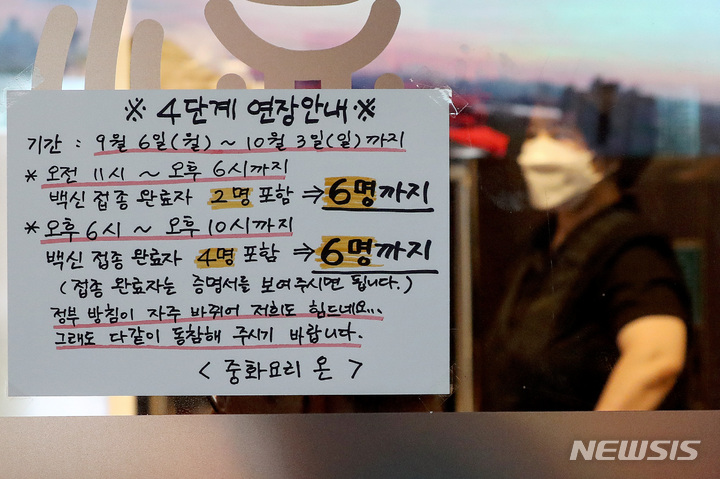 ※ 4단계 연장안내 ※
기간 : 9월 6일(월) ~ 10월 3일(일)까지
* 오전 11시 ~ 오후 6시까지
백신 접종 완료자 2명 포함 ⇒ 6명까지
* 오후 6시 ~ 오후 10시까지
백신 접종 완료자 4명 포함 ⇒ 6명까지
(접종 완료자는 증명서를 보여주시면 됩니다.)
정부 방침이 자주 바뀌어 저희도 힘드네요...
그래도 다같이 동참해 주시기 바랍니다.
< 중화요리 온 >
NEWSIS